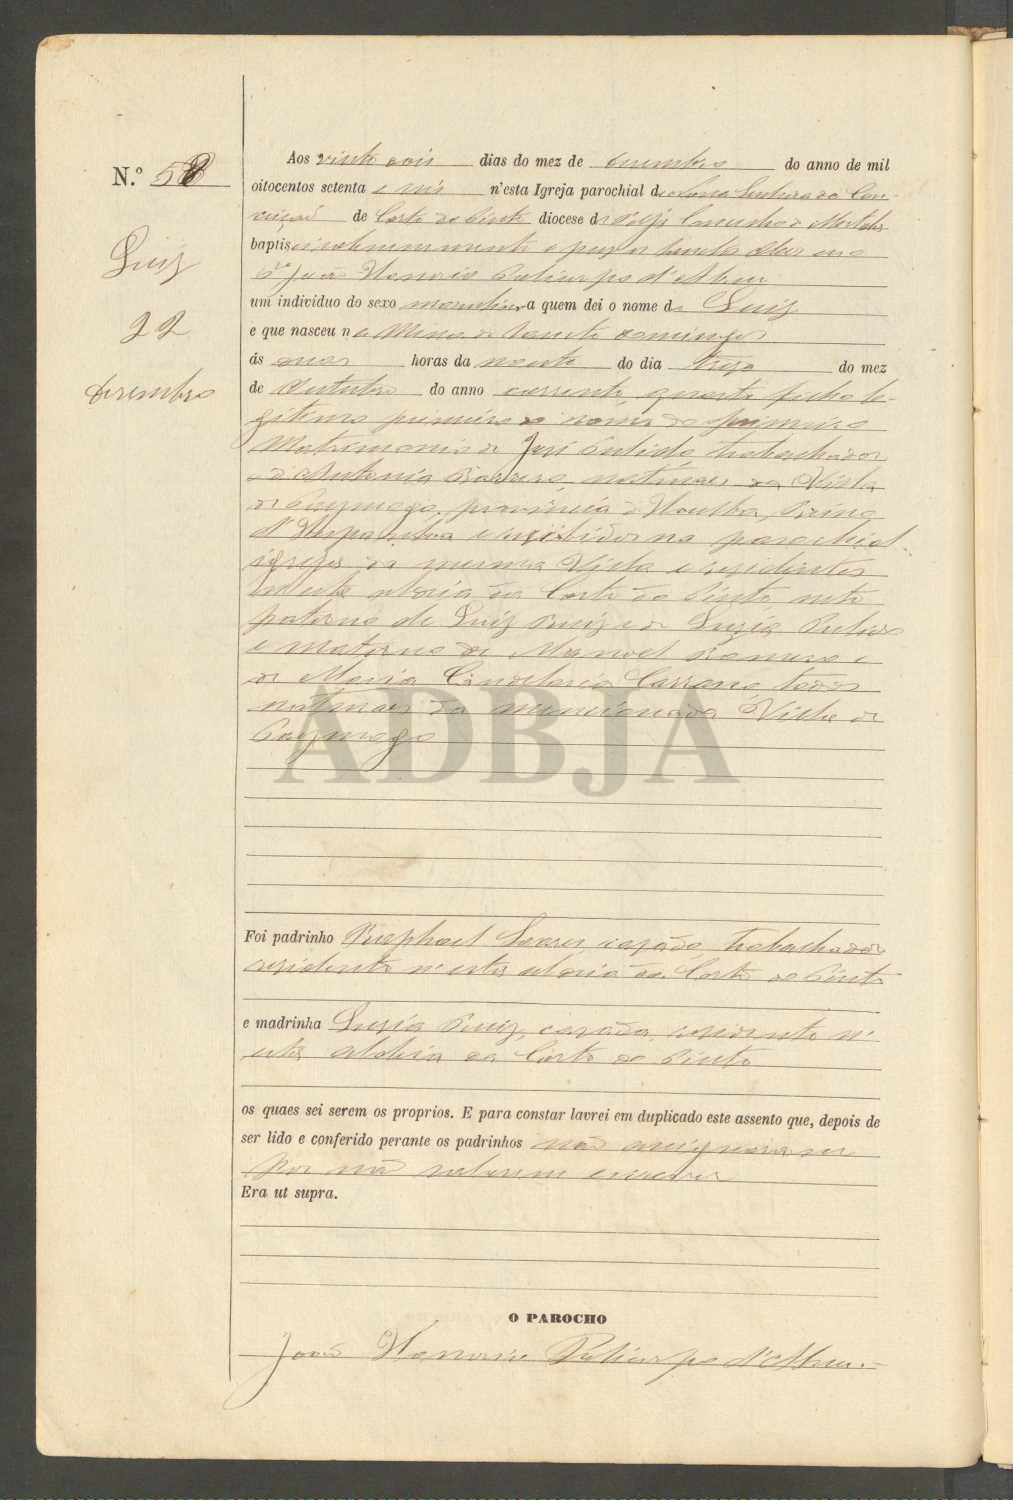 N.º 58
Luiz
22
Dezembro
Aos vinte dois dias do mez de Dezembro do anno de mil
oitocentos setenta e seis n'esta Igreja parochial de Nossa Senhora da Con-
ceiçaõ de Corte do Pinto diocese de Beja Concelho de Mertola
baptisei solemnemente e puz os Santos oleos eu o
P.e Joaõ Honorio Policarpo d'Abreu
um individuo do sexo masculino a quem dei o nome de Luiz
e que nasceu na Mina de Saneto Domingos
ás onze horas da noute do dia treze do mez
de Outubro do anno corrente, quarto filho le-
gitimo primeiro do nome do primeiro
Matrimonio de José trabalhador
e d'Antonia Romero, naturaes da Villa
de Paymogo, provincia d'Houlba, Reino
d'Hespanha e recibidos na parochial
igreja da mesma Villa e residentes
n'esta aldeia da Corte do Pinto, neto
paterno de Luiz Ruiz e de Luzia
e materno de Manoel Romero e
de Maria Candelaria Carrano, todos
naturaes da mencionada Villa de
Paymogo
ADBJA
Foi padrinho Raphael Soares, casado, trabalhador
residente n'esta aldeia da Corte do Pinto
e madrinha Luzia Ruiz, casada, residente n'
esta aldeia da Corte do Pinto
os quaes sei serem os proprios. E para constar lavrei em duplicado este assento que, depois de
ser lido e conferido perante os padrinhos naõ assignaram
por naõ saberem escrever
Era ut supra.
O PAROCHO
Joaõ Honorio Policarpo d'Abreu.